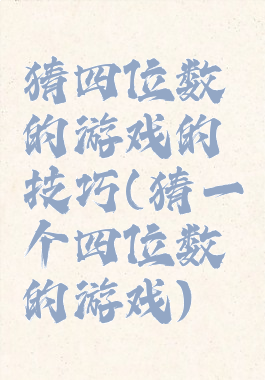 猜四位数
的游戏的
技巧(猜一
个四位数
的游戏)